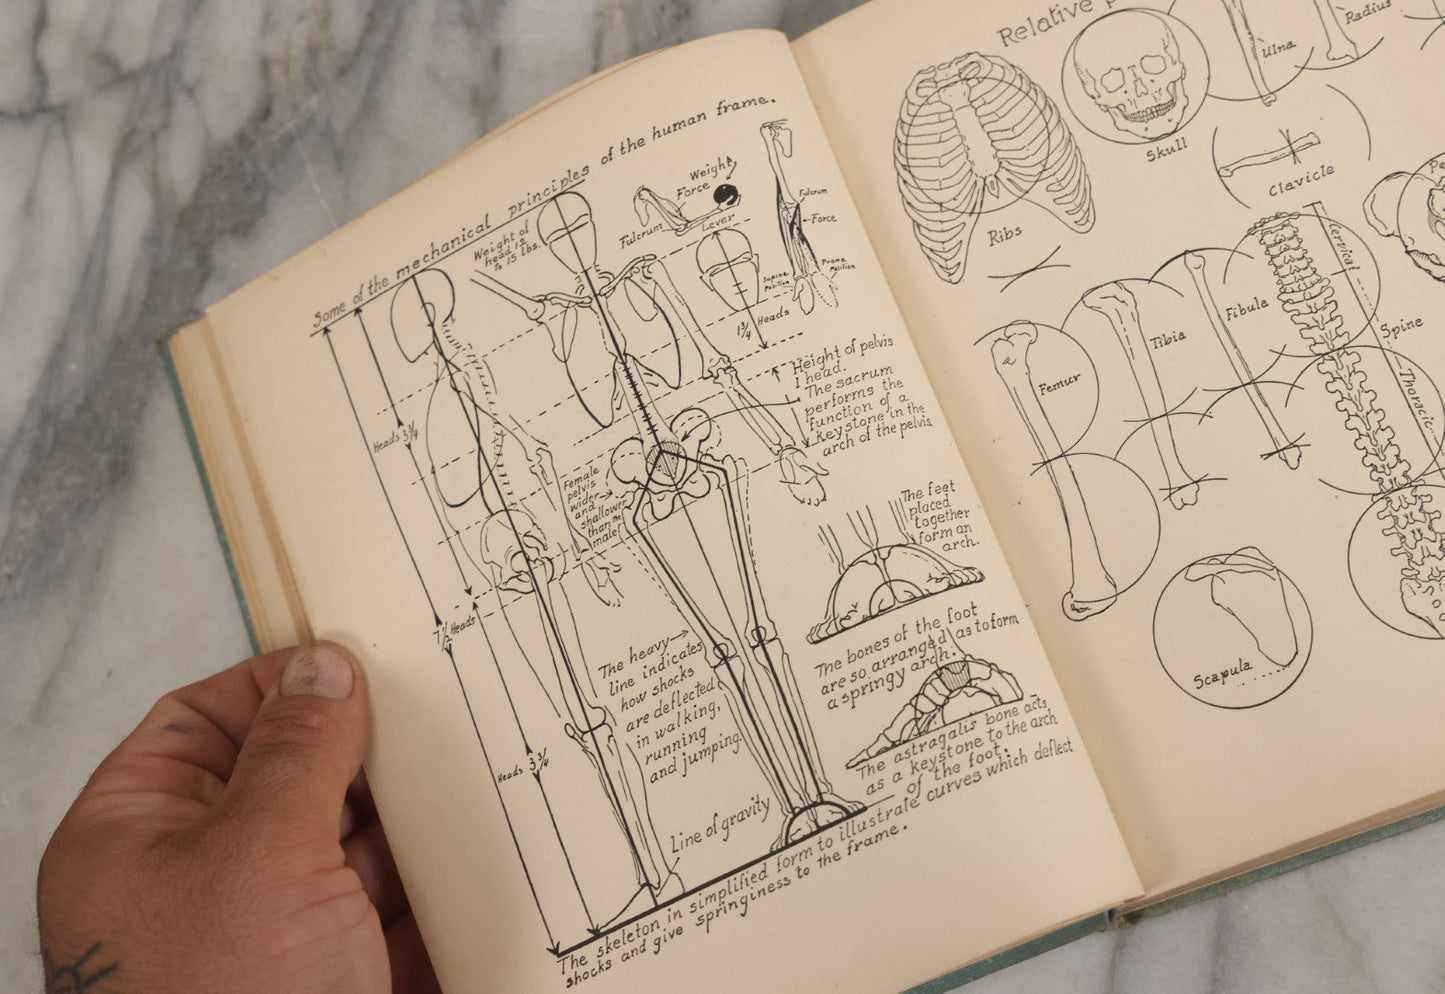 Some of the mechanical principles of the human frame.
Weight of
head 12
to 15 lbs.
Weight
Force
Fulcrum
Lever
Fulcrum
Force
Supine
Position
Prone
Position
1¾ Heads
Heads 3¾
7½ Heads
Heads 3¾
Height of pelvis
1 head.
The sacrum
performs the
function of a
keystone in the
arch of the pelvis.
Female
pelvis
wider
and
shallower
than
male
The feet
placed
together
form an
arch.
The bones of the foot
are so arranged as to form
a springy arch.
The heavy
line indicates
how shocks
are deflected
in walking,
running
and jumping.
The astragalis bone acts
as a keystone to the arch
of the foot.
Line of gravity
The skeleton in simplified form to illustrate curves which deflect
shocks and give springiness to the frame.
Relative
Ribs
Skull
Ulna
Radius
Clavicle
Femur
Tibia
Fibula
Cervical
Spine
Thoracic
Scapula